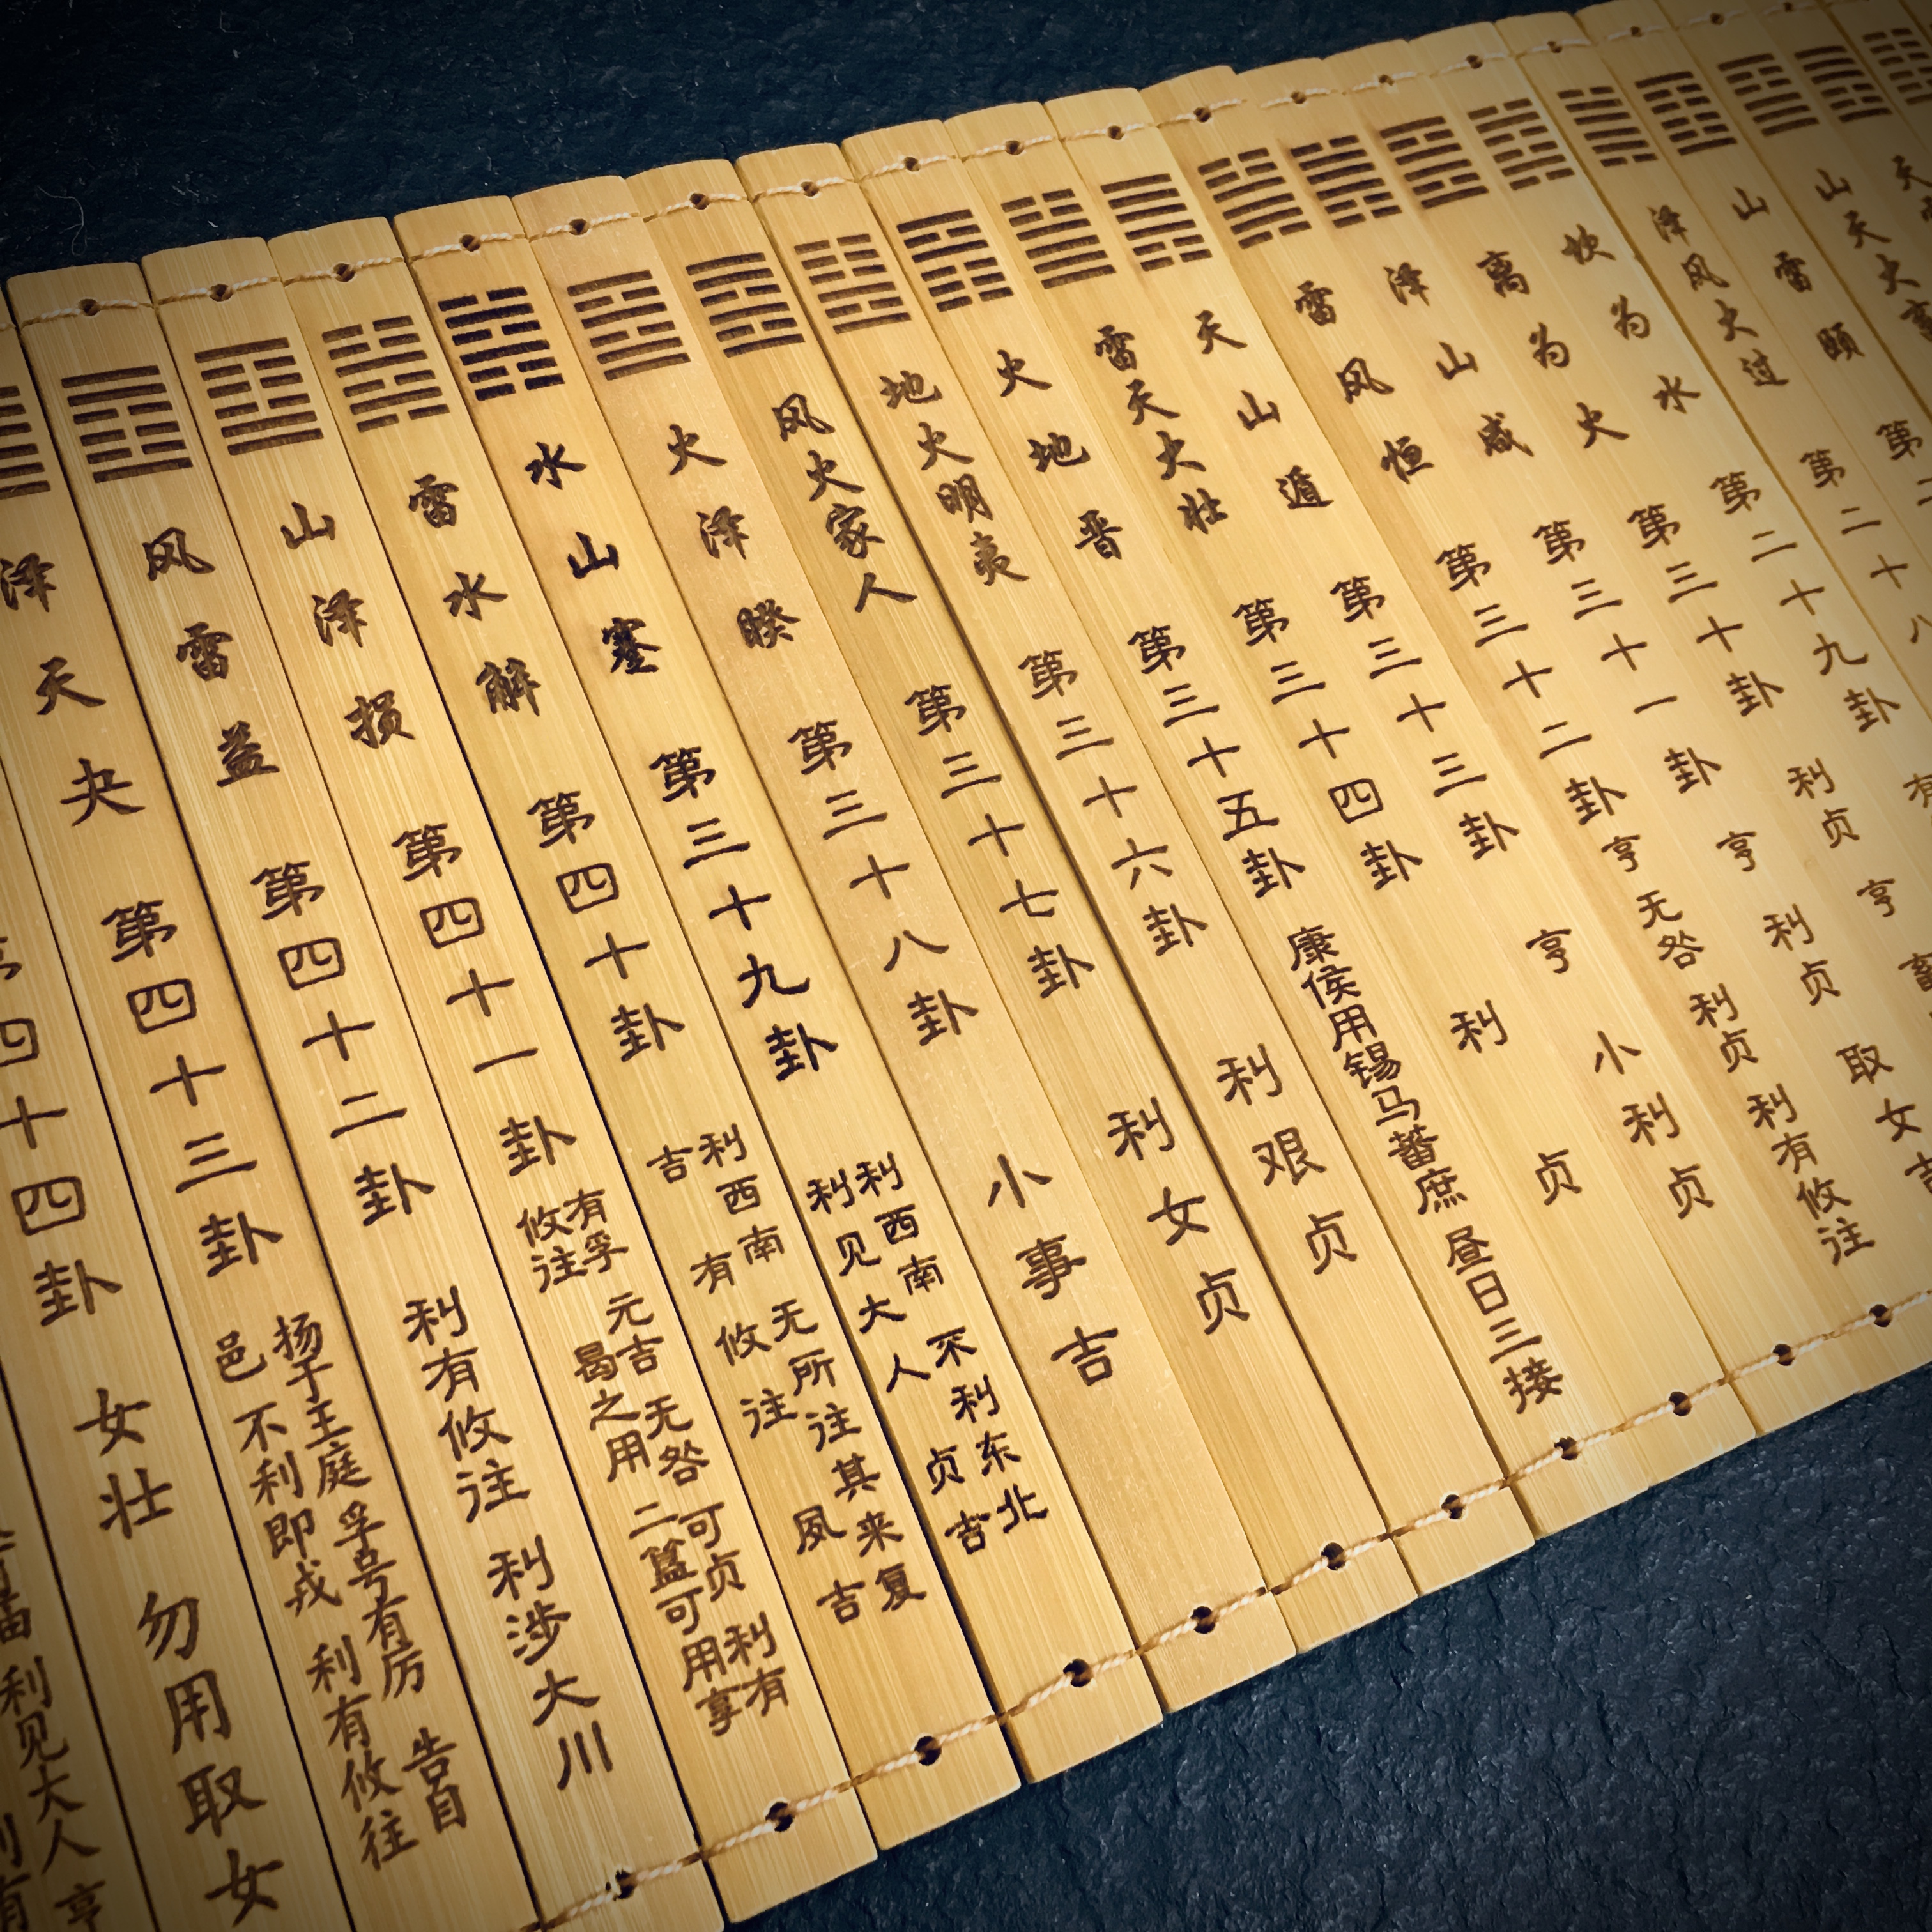 山天大
山雷颐 第二十
泽风大过 第二十八
坎为水 第二十九卦 有
离为火 第三十卦 利贞 亨 畜
泽山咸 第三十一卦 亨 利贞 取女吉
雷风恒 第三十二卦 亨 无咎 利贞 利有攸往
天山遁 第三十三卦 亨 小利贞
雷天大壮 第三十四卦 利贞
火地晋 第三十五卦 康侯用锡马蕃庶 昼日三接
地火明夷 第三十六卦 利艰贞
风火家人 第三十七卦 利女贞
火泽睽 第三十八卦 小事吉
水山蹇 第三十九卦
利西南 不利东北
利见大人 贞吉
雷水解 第四十卦
利西南 无所往 其来复
吉 有攸往 夙吉
山泽损 第四十一卦
有孚 元吉 无咎 可贞 利有
攸往 曷之用 二簋可用享
风雷益 第四十二卦 利有攸往 利涉大川
泽天夬 第四十三卦
扬于王庭 孚号有历 告自
邑 不利即戎 利有攸往
四十四卦 女壮 勿用取女
利见大人 亨